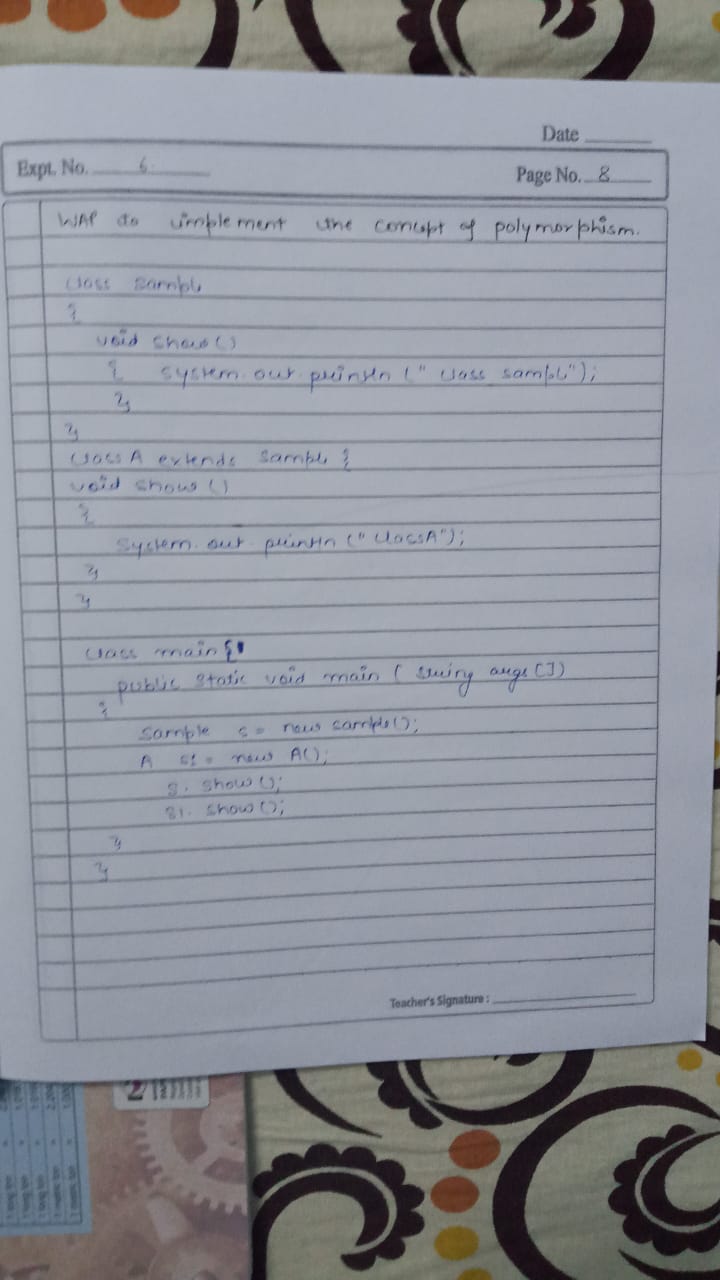 Date
Expt. No. 6.
Page No. 8
WAP to implement the concept of polymorphism.
class Sample
{
void show()
{ system.out.println (" class sample");
}
}
class A extends Sample {
void show ()
{
System.out.println (" class A");
}
}
class main {
public static void main ( string args [])
{
Sample s = new sample();
A s1 = new A();
s. show ();
s1. show ();
}
}
Teacher's Signature :